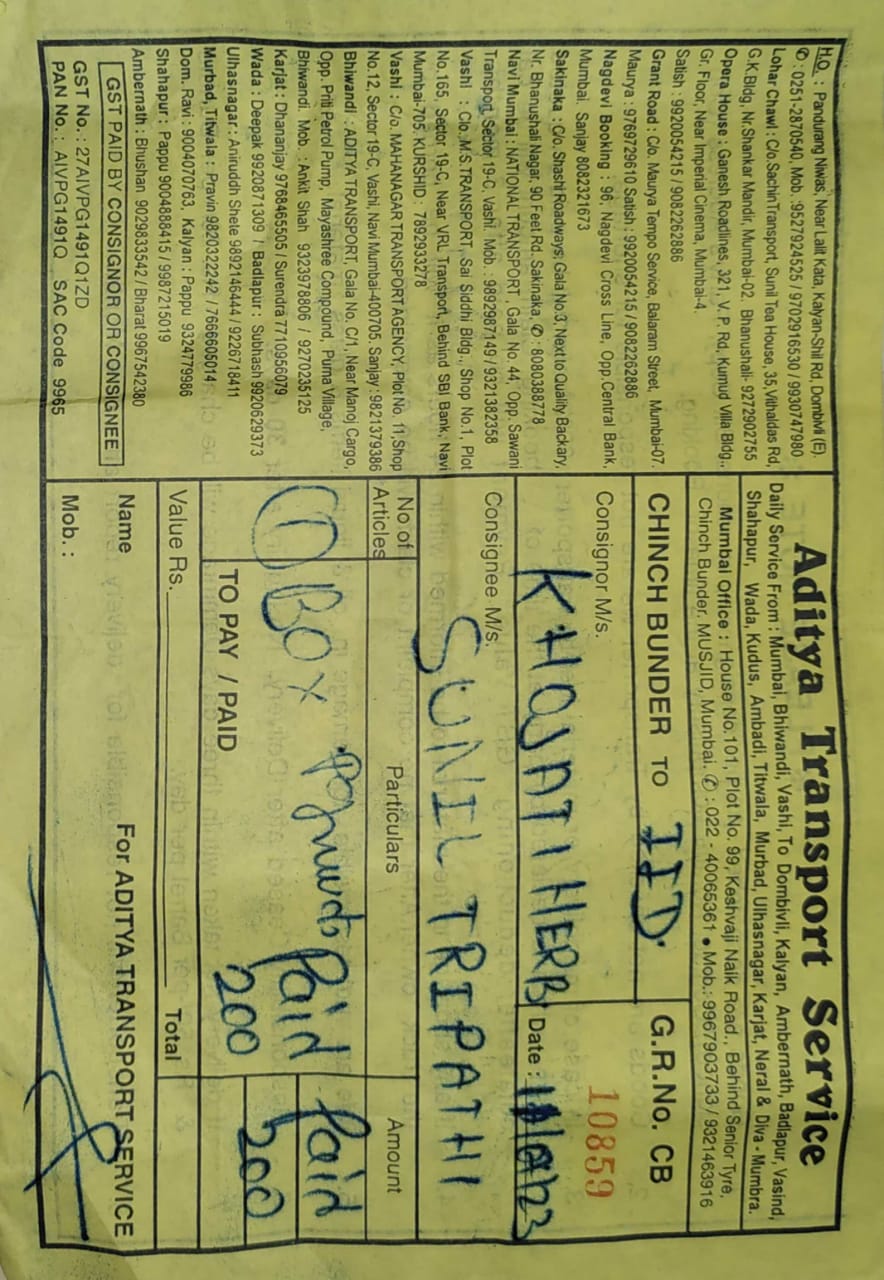 Aditya Transport Service
Daily Service From : Mumbai, Bhiwandi, Vashi, To Dombivli, Kalyan, Ambernath, Badlapur, Vasind,
Shahapur, Wada, Kudus, Ambadi, Titwala, Murbad, Ulhasnagar, Karjat, Neral & Diva - Mumbra.
Mumbai Office : House No.101, Plot No. 99, Keshvaji Naik Road., Behind Senior Tyre,
Chinch Bunder, MUSJID, Mumbai. ✆ : 022 - 40065361 ● Mob.: 9967903733 / 9321463916
CHINCH BUNDER TO IID.
G.R.No. CB
10859
Consignor M/s.
KHQNTI HERB
Date :
Consignee M/s.
SUNIL TRIPATHI
No of Articles
Particulars
Amount
(1) BOX
Paid
Paid
200
200
TO PAY / PAID
Value Rs.
Total
Name
For ADITYA TRANSPORT SERVICE
Mob. :
H.O. : Pandurang Niwas, Near Lalit Kata, Kalyan-Shil Rd, Dombivli (E).
✆ : 0251-2870540, Mob. :9527924525 / 9702916530 / 9930747980
Lohar Chawl : C/o.Sachin Transport, Sunil Tea House, 35,Vithaldas Rd,
G.K.Bldg, Nr.Shankar Mandir, Mumbai-02. Bhanushali- 9272902755
Opera House : Ganesh Roadlines, 321, V. P. Rd, Kumud Villa Bldg.,
Gr. Floor, Near Imperial Cinema, Mumbai-4.
Satish : 9920054215 / 9082262886
Grant Road : C/o. Maurya Tempo Service, Balaram Street, Mumbai-07.
Maurya : 9769729610 Satish : 9920054215 / 9082262886
Nagdevi Booking : 96, Nagdevi Cross Line, Opp.Central Bank,
Mumbai. Sanjay 8082321673
Sakinaka : C/o. Shashi Roadways, Gala No.3, Next to Quality Backary,
Nr. Bhanushali Nagar, 90 Feet Rd, Sakinaka, ✆ : 8080388778
Navi Mumbai : NATIONAL TRANSPORT , Gala No. 44, Opp. Sawani
Transport, Sector 19-C, Vashi. Mob. : 9892987149 / 9321382358
Vashi : C/o. M/S.TRANSPORT, Sai Siddhi Bldg., Shop No.1, Plot
No.165, Sector 19-C, Near VRL Transport, Behind SBI Bank, Navi
Mumbai-705. KURSHID : 7892933278
Vashi : C/o. MAHANAGAR TRANSPORT AGENCY, Plot No. 11,Shop
No.12, Sector 19-C, Vashi, Navi Mumbai-400705. Sanjay : 9821379386
Bhiwandi : ADITYA TRANSPORT, Gala No. C/1, Near Manoj Cargo,
Opp. Priti Petrol Pump, Mayashree Compound, Purna Village,
Bhiwandi. Mob. : Ankit Shah 9323978806 / 9270235125
Karjat : Dhananjay 9768465505 / Surendra 7710956079
Wada : Deepak 9920871309 / Badlapur : Subhash 9920629373
Ulhasnagar : Aniruddh Shete 9892146444 / 9226718411
Murbad, Titwala : Pravin 9820322242 / 7666605014
Dom. Ravi : 9004070763, Kalyan : Pappu 9324779986
Shahapur : Pappu 9004888415 / 9987215019
Ambernath : Bhushan 9029833542 / Bharat 9967542380
GST PAID BY CONSIGNOR OR CONSIGNEE
GST No. : 27AIVPG1491Q1ZD
PAN No. : AIVPG1491Q SAC Code 9965